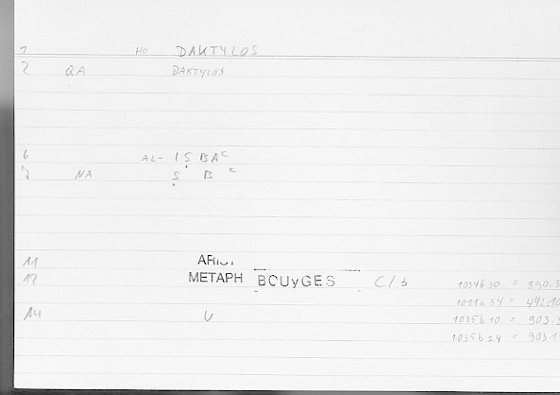 1 HO DAKTYLOS
2 QA DAKTYLOS
6 AL- IṢBAᶜ
7 NA Ṣ B ᶜ
11 ARIST
12 METAPH BOUyGES C/b 1034b30 = 890.3
= 442.10
14 U 1035b10 = 903.
1035b24 = 903.1